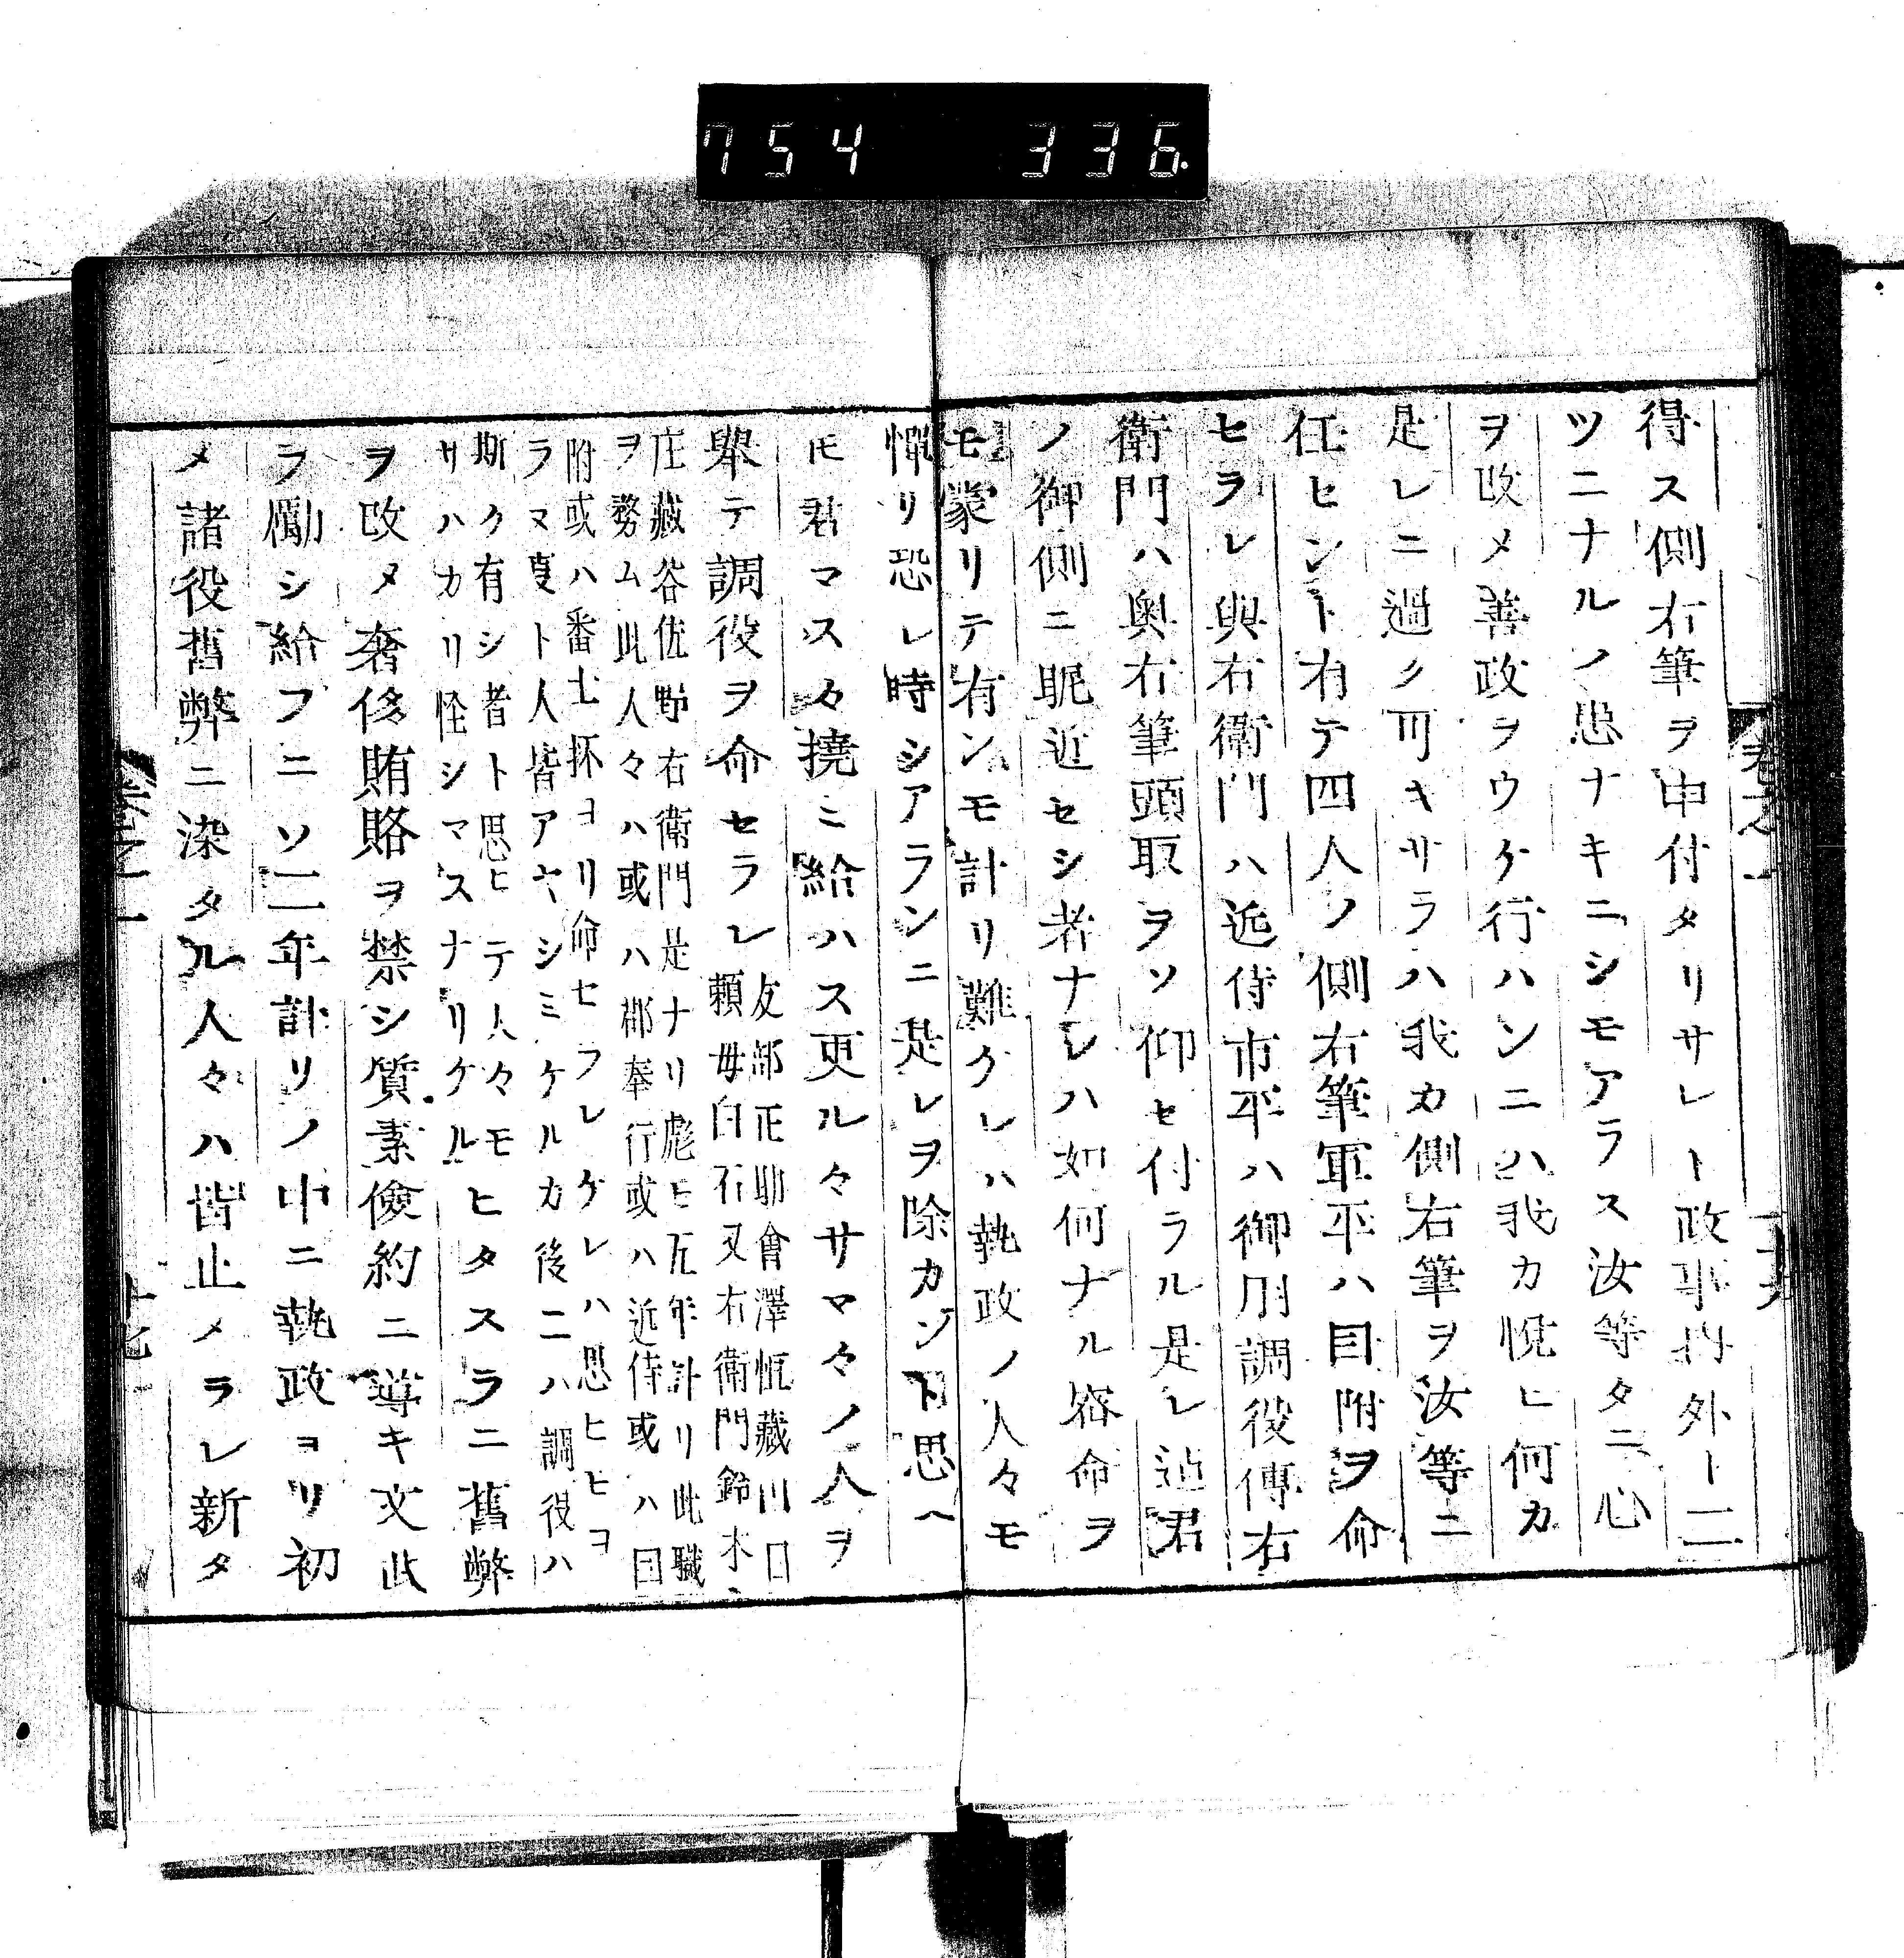 754 336
得ス側右筆ヲ申付タリサレト政事内外ト二
ツニナルノ患ナキニシモアラス汝等タニ心
ヲ改メ善政ヲウケ行ハンニハ我カ悦ヒ何カ
是レニ過ク可キサラハ我カ側右筆ヲ汝等ニ
任ヒント有テ四人ノ側右筆軍平ハ目附ヲ命
セラレ與右衛門ハ近侍市平ハ御用調役傳右
衛門ハ奥右筆頭取ヲソ仰セ付ラル是レ近君
ノ御側ニ昵近セシ者ナレハ如何ナル密命ヲ
モ蒙リテ有ンモ計リ難ケレハ執政ノ人々モ
憚リ恐レ時シアランニ是レヲ除カント思ヘ
モ君マスク撓ミ給ハス更ル々サマ々ノ人ヲ
舉テ調役ヲ命セラレ
友部正助會澤恒藏川口
頼母白石又右衛門鈴木
庄藏谷佐野右衛門是ナリ彪ヒ五年計リ此職
ヲ務ム此人々ハ或ハ郡奉行或ハ近侍或ハ目
附或ハ番士抔ヨリ命セラレケレハ思ヒヒヨ
ラマ㕝ト人皆アヤシミケルカ後ニハ調役ハ
斯ク有シ者ト思ヒテ人々モ
サハカリ怪シマスナリケル
ヒタスラニ舊弊
ヲ改メ奢侈賄賂ヲ禁シ質素儉約ニ導キ文武
ラ勵シ給フニソ二年計リノ中ニ執政ヨリ初
メ諸役舊弊ニ染タル人々ハ皆止メラレ新タ